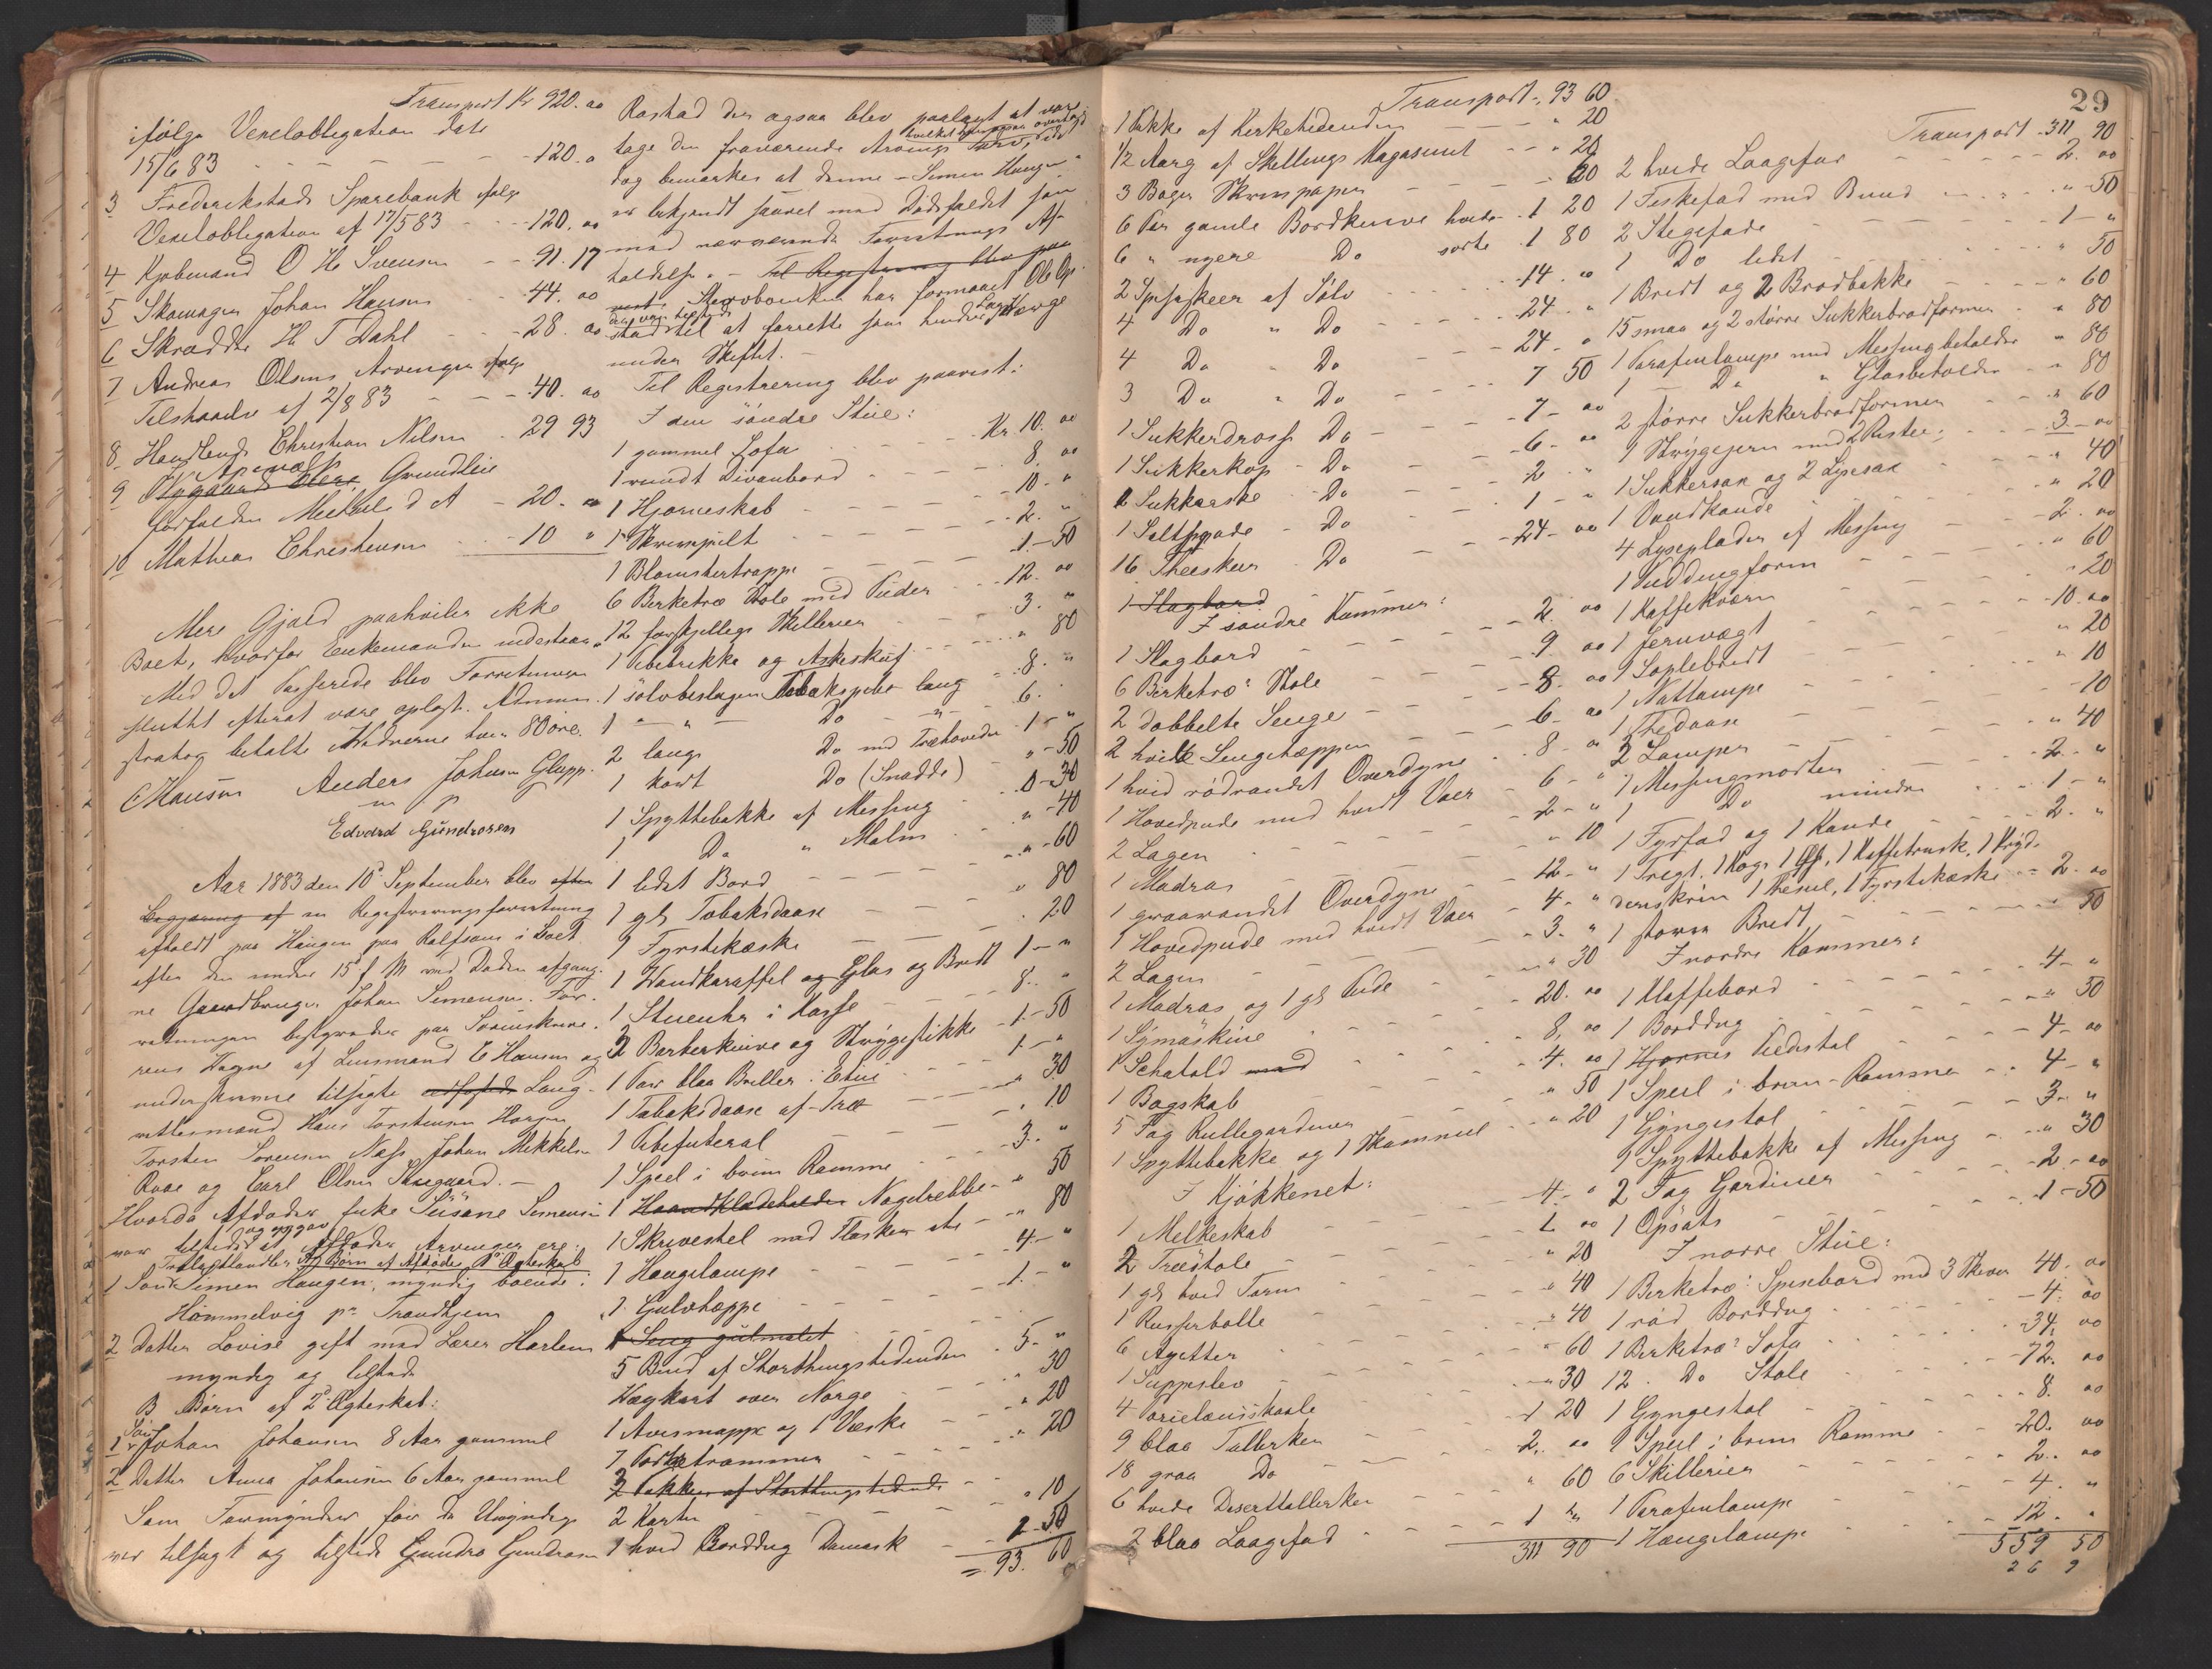 Transport Kr 920. 00
ifølge Vexelobligation dato
15/6 83 - - - - 120. 0
3 Frederikstads Sparebank ifølge
Vexelobligation af 17/5 83 - - 120. 00
4 Kjøbmand O H Svensen - - 91. 17
5 Skomager Johan Hansen - 44. 00
6 Skrædder H T Dahl - - 28. 00
7 Andreas Olsens Arvinger ifølge
Tilstaaelse af 2/8 83 - - 40. 00
8 Handlende Christian Nilsen . 29 93
9 Grundleie
forfalden Mikkeli d A - 20. 00
10 Mathias Christensen - - 10 "
Mere Gjæld paahviler ikke
Boet, hvorfor Enkemanden indestaar.
Med det Passerede blev Forretningen
sluttet efterat være oplæst. Admini-
strator betalte Vidnerne hver 80 øre.
C Hansen Anders Johnsen Glupp.
m p
Edvard Gundrosen
Aar 1883 den 10de September blev efter
Begjæring af en Registreringsforretning
afholdt paa Haugen paa Rolfsøen i Boet
efter den under 15 f M ved Døden afgang-
ne Gaardbruger Johan Simensen. For-
retningen bestyredes paa Sorenskrive-
rens Vegne af Lensmand C Hansen og
undertegnede tilsagte Laug-
rettesmænd Hans Torstensen Haugen
Torsten Sørensen Næs, Johan Mikkelsen
Roae og Carl Olsen
Hvorda Afdødes Enke Susane Simensen
var tilstede og opgav at Afdødes Arvinger ere:
Trælasthandler A Børn af Afdødes 1ste Ægteskab
1 Søn Simen Haugen, myndig boende i
Hommelvig pr. Trondhjem
2 Datter Lovise gift med Lærer Harlem
myndig og tilstede
B Børn af 2det Ægteskab:
1 Søn Johan Johansen 8 Aar gammel
2 Datter Anna Johansen 6 Aar gammel
Som Formynder for de Umyndige
var tilsagt og tilstede Gundro Gundrosen
Rostad der ogsaa blev paalagt at vare-
tage den fraværende Arvings Tarv, hvilket han ogsaa overtog
dog bemærkes at denne - Simen Haugen -
er bekjendt saavel med Dødsfaldet som
med nærværende Forretnings Af-
holdelse. - Til Registrering blev paa-
vist: Stervboenken har formaaet Ole
der var tilstede til at forrette som hendes Laugværge
under Skiftet. -
Til Registrering blev paavist:
I den søndre Stue:
1 gammel Sofa - - Kr. 10. 00
1 rundt Divanbord - 8. 00
1 Hjørneskab - - - 10. "
1 Skrivepult - - - 2. "
1 Blomstertrappe - - 1. - 50
6 Birketræ Stole med Puder - - 12. 00
12 forskjellige Skillerier - - 3. "
1 Pibebrikke og Askeskuf - - " 80
1 sølvbeslagen Tobakspibe lang - 8. "
1 " " - Do - " - 6.
2 lange Do med Træhoveder - 1 - "
1 kort Do (Snadde) - " - 50
1 Spyttebakke af Messing - 0 - 30
1 Do " Malm - " - 40
1 ledet Bord - - - " - 60
1 gl Tobaksdaase - - - " 80
1 Fyrstikæske - - - . 20
1 Vandkaraffel og Glas og Bredt 1 - "
1 Stueuhr i Kasse - - - 8. "
2 Barberknive og Strygestikke - 1. - 50
1 Par blaa Briller i Etui - - 1. - "
1 Tobaksdaase af Træ - - - " 30
1 Pibefuteral - - - " 10
1 Speil i brun Ramme - - - 3. "
1 Haandklædeholder Nøgelrekke - " 50
1 Skrivestel med Flasker etc - " 80
1 Hængelampe - - - 4. - "
1 Gulvtæppe - - - 1. - "
1 Seng gulmalet
5 Bind af Storthingstidenden - 5. - "
Vægkart over Norge - - " 30
1 Avismappe og 1 Væske - - " 20
7 Portrætrammer - - " 20
2 Pakker af Storthingstidende
2 Karter - - - " 10
1 hvid Borddug Damask - - 2 - 50
= 93. 60
Transport - 93 60
1 Pakke af Kirketidenden - - - " 20
1/2 Aarg af Skillings Magasinet - - - " 20
3 Bøger Skrivpapir - - - 60
6 Par gamle Bordknive hvide - 1 20
6 " nyere Do sorte . 1 80
2 Spiseskeer af Sølv - - - 14. 00
4 Do " Do - - - 24. "
4 Do " Do - - - 24. 0
3 Do " Do - - - 7 50
1 Sukkerdross Do - - - 7 - 00
1 Sukkerkop - Do - - - 6 - 00
1 Sukkerske - Do - - - 2. "
1 Saltspade - Do - - - 1 - "
16 Theskeer Do - - - 24 - 00
1 Slagbord
I søndre Kammer:
1 Slagbord - - - 2. 00
6 Birketræ Stole - - - 9 00
2 dobbelte Senge - - - 8. 00
2 hvide Sengetæpper - - - 6 - 00
1 hvid rødrandet Overdyne - 8 - 0
1 Hovedpude med hvidt Vaer - 6 - "
2 Lagen - - - 2 - "
1 Madras - - - " 10
1 graarandet Overdyne - - 12 - "
1 Hovedpude med hvidt Vaer - 4 - "
2 Lagen - - - 3. "
1 Madras og 1 gl Pude - - " 30
1 Symaskine - - - 20. 00
1 Schatold med - - - 8, 00
1 Bogskab - - - 4. 00
5 Fag Rullegardiner - - - " 50
1 Spyttebakke og 1 Skammel - - " 20
I Kjøkkenet:
1 Melkeskab - - - 4. - 0
2 Træstole - - - 1. 00
1 gl hvid Terrin - - - " 20
1 Russerbolle - - - " 40
6 Asjetter - - - " 40
1 Suppeslev - - - " 60
4 Porselænsskaale - - - " 30
9 blaa Tallerken - - - 1 20
18 graa Do - - - 2. 00
6 hvide Deserttallerken - - " 60
2 blaa Laagefad - - - 1 "
311 90
29
Transport - 311 90
2 hvide Laagefat - - - 2. 00
1 Feskefad med Bund - - - " 50
2 Stegefade - - - 1 - "
1 Do ledet - - - " 50
1 Bredt og 2 Brødbakke - - " 60
15 smaa og 2 større Sukkerbrødformer - " 80
1 Parafinlampe med Messingbeholder " 80
1 Do " Glasbeholder - " 80
2 større Sukkerbrødformer - - " 60
1 Strygejern med 2 Rister - - 3 - 00
1 Sukkersax og 2 Lysesax - - " 40
1 Vandkande - - - " 20
4 Lyseplader af Messing - - 2. 00
1 Puddingform - - - " 60
1 Kaffekværn - - - " 20
1 Jernvægt - - - 10. 00
1 - - - " 20
1 Natlampe - - - " 10
1 Thedaase - - - - 10
2 Lamper - - - " 40
1 Messingmorter - - - 2 - "
1 Do mindre - - - 1 - "
1 Fyrfad og 1 Kande - - - 2. "
1 Tregt, 1 Kage 1 , 1 Kaffetragt, 1 Kryd-
derskrin 1 , 1 Fyrstikæske - - 2. 00
1 større Bredt - - - 50
I nordre Kammer:
1 Klaffebord - - - 4 - "
1 Borddug - - - " 50
1 Hjørnes Piedestal - - - 4 - 00
1 Speil i brun Ramme - - 4 - "
1 Gyngestol - - - 3 - "
1 Spyttebakke af Messing - - " 30
2 Fag Gardiner - - - 2 - 00
1 Opsats - - - 1 - 50
I norre Stue:
1 Birketræ Spisebord med 3 Skiver 40. 00
1 rød Borddug - - - 4. 00
1 Birketræ Sofa - - - 34. 00
12 Do Stole - - - 72. 00
1 Gyngestol - - - 8. 00
1 Speil i brun Ramme - - 20. 00
6 Skillerier - - - 2. 00
1 Parafinlampe - - - 4. "
1 Hængelampe - - - 12. "
559 50
2 6 9